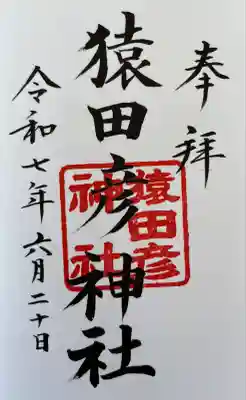 奉拝
猿田彦神社
猿田彦
神社
令和七年六月二十日